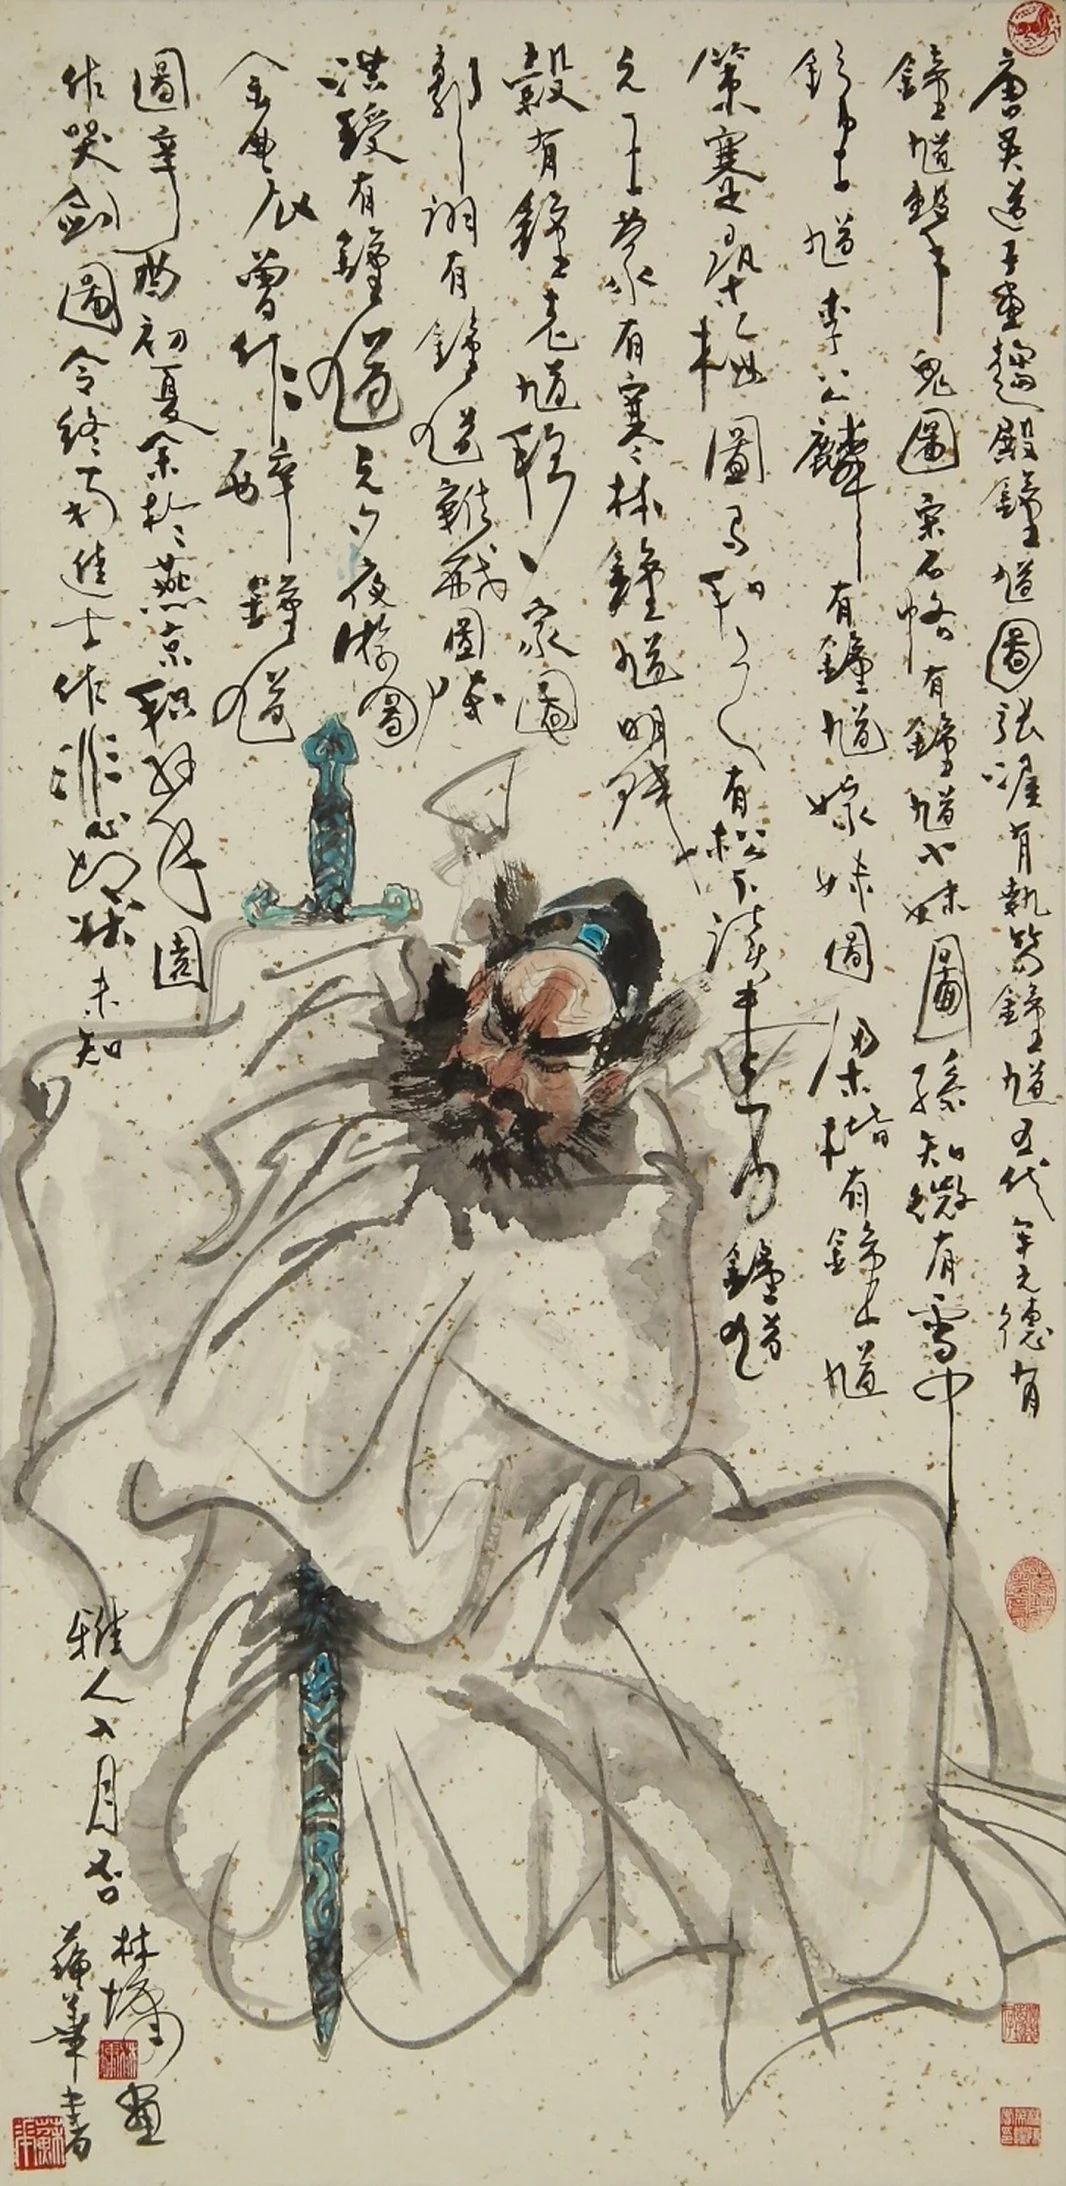 唐吳道子畫趨殿鍾馗圖張渥有執笏鍾馗五代牟元德有
鍾馗擊鬼圖宋石恪有鍾馗小妹圖孫知微有雪中
鍾馗李公麟有鍾馗嫁妹圖梁楷有鍾馗
策蹇尋梅圖馬和之有松下讀書鍾馗
元王蒙有寒林鍾馗明錢
穀有鍾老馗移家圖
郭詡有鍾馗雜戲圖陳
洪綬有鍾馗元夜游圖
余 曾作 醉鍾馗
圖辛酉初夏余於燕京 園
作哭劍圖令終南進士作悲 狀未知
雅人入目否
林墉畫
蘇華書